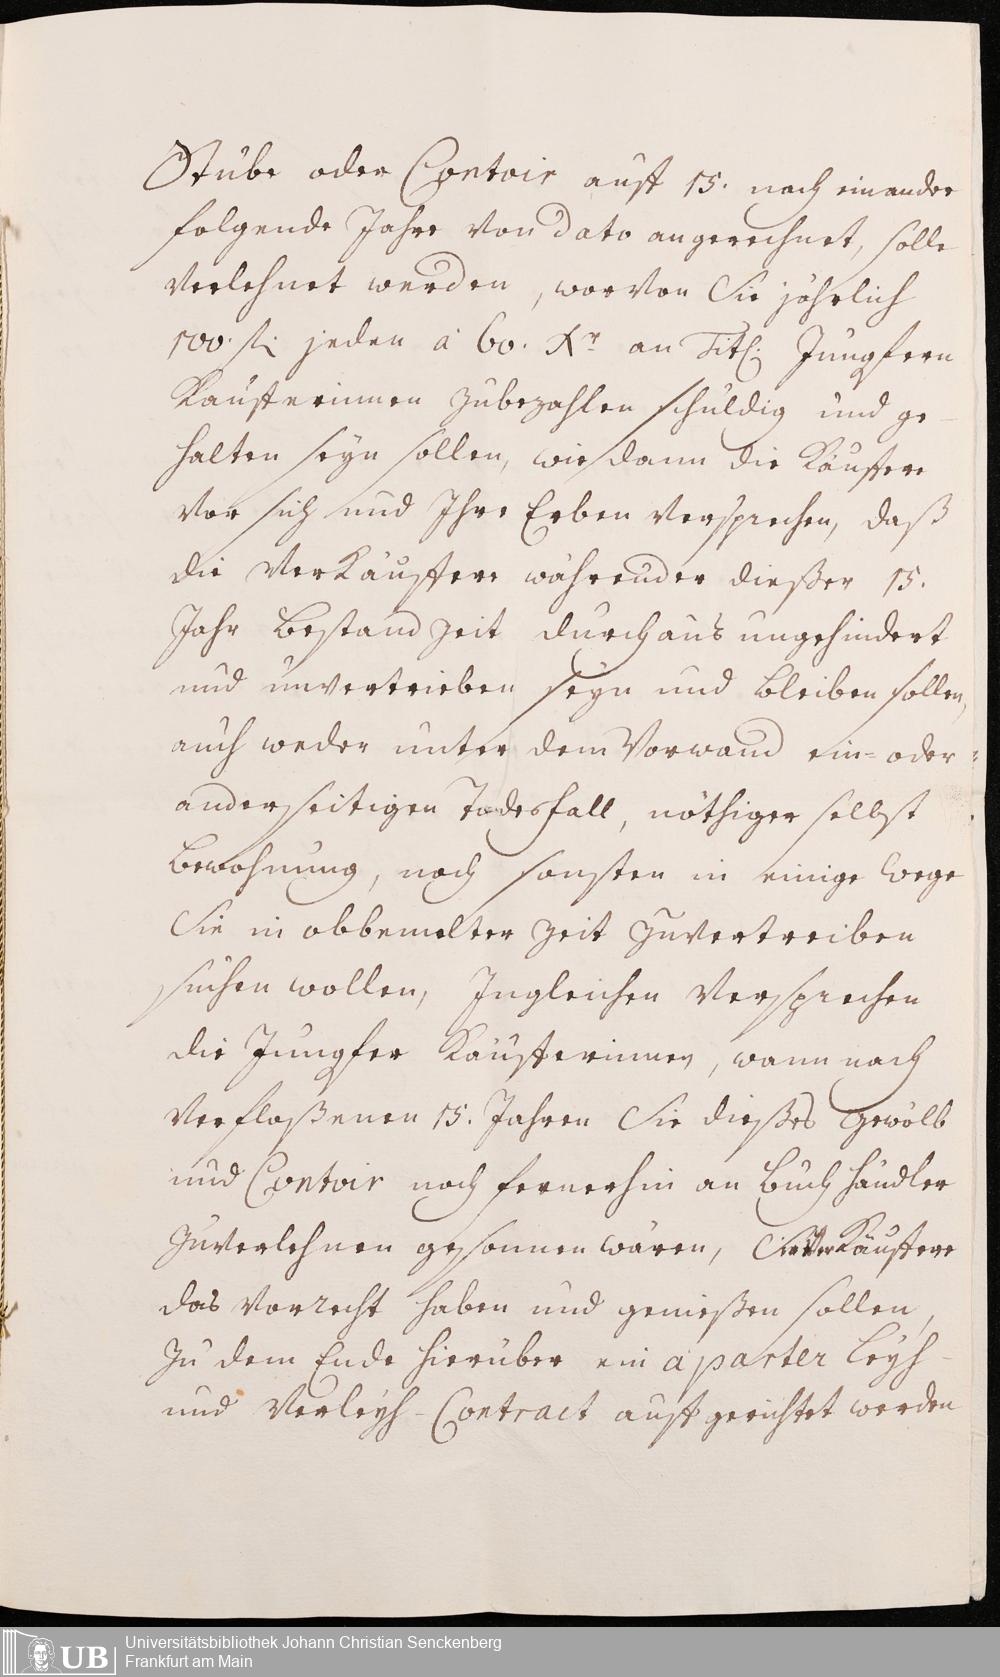 Stübe oder Contoir auff 15. nach einander
folgende Jahre von dato angerechnet, solle
verlehnet werden, worvon Sie jährlich
100. fl. jeden à 60. Xr. an Titl. Jungfern
Käufferinnen zubezahlen schuldig und ge-
halten seyn sollen, wie dann die Käuffere
vor sich und Ihre Erben versprechen, daß
die Verkäuffere währender dießer 15.
Jahr Bestand zeit durchaus ungehindert
und unvertrieben seyn und bleiben sollen,
auch weder unter dem Vorwand ein- oder
anderseitigen Todesfall, nöthiger selbst
Bewohnung, noch sonsten in einige wege
Sie in obbemelter zeit zuvertreiben
suchen wollen, Ingleichen versprechen
die Jungfer Käufferinnen, wann nach
verfloßenen 15. Jahren Sie dießes Gewölb
und Contoir noch fernerhin an Buch händler
zuverlehnen gesonnen wären, Sie Verkäuffere
das Vorrecht haben und genießen sollen,
Zu dem Ende hierüber ein aparter Leyh-
und Verleyh-Contract auffgerichtet werden
Universitätsbibliothek Johann Christian Senckenberg
Frankfurt am Main
UB